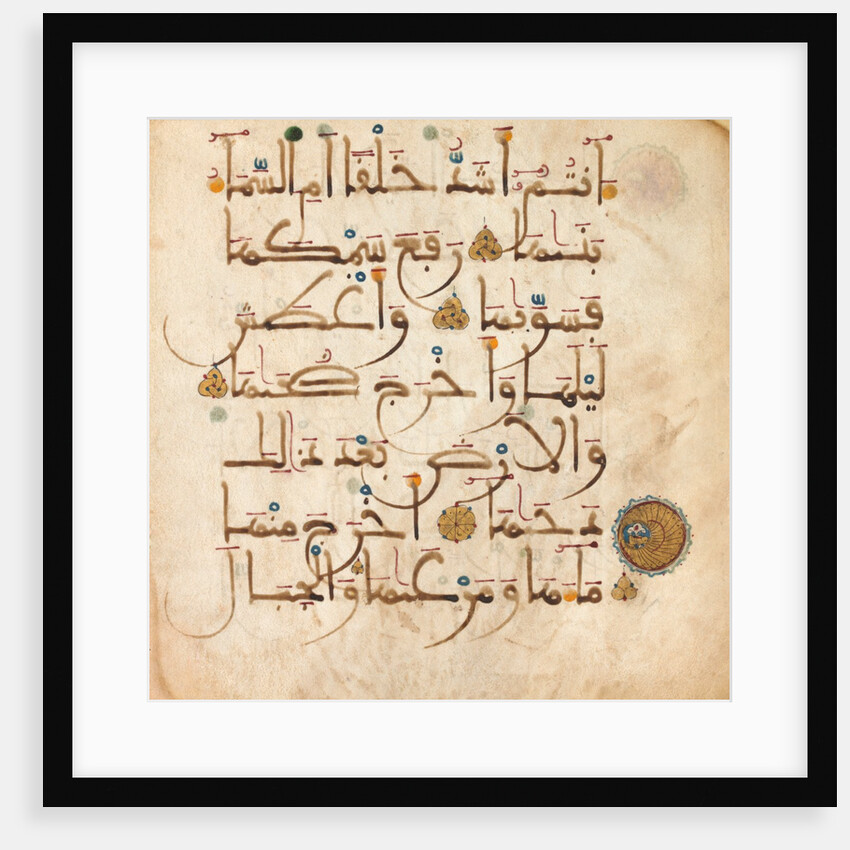 ءَانتُمْ أَشَدُّ خَلْقًا أَمِ السَّمَآءُ
بَنَىٰهَا رَفَعَ سَمْكَهَا
فَسَوَّىٰهَا وَأَغْطَشَ
لَيْلَهَا وَأَخْرَجَ ضُحَىٰهَا
وَالْأَرْضَ بَعْدَ ذَٰلِكَ
دَحَىٰهَآ أَخْرَجَ مِنْهَا
مَآءَهَا وَمَرْعَىٰهَا وَالْجِبَالَ